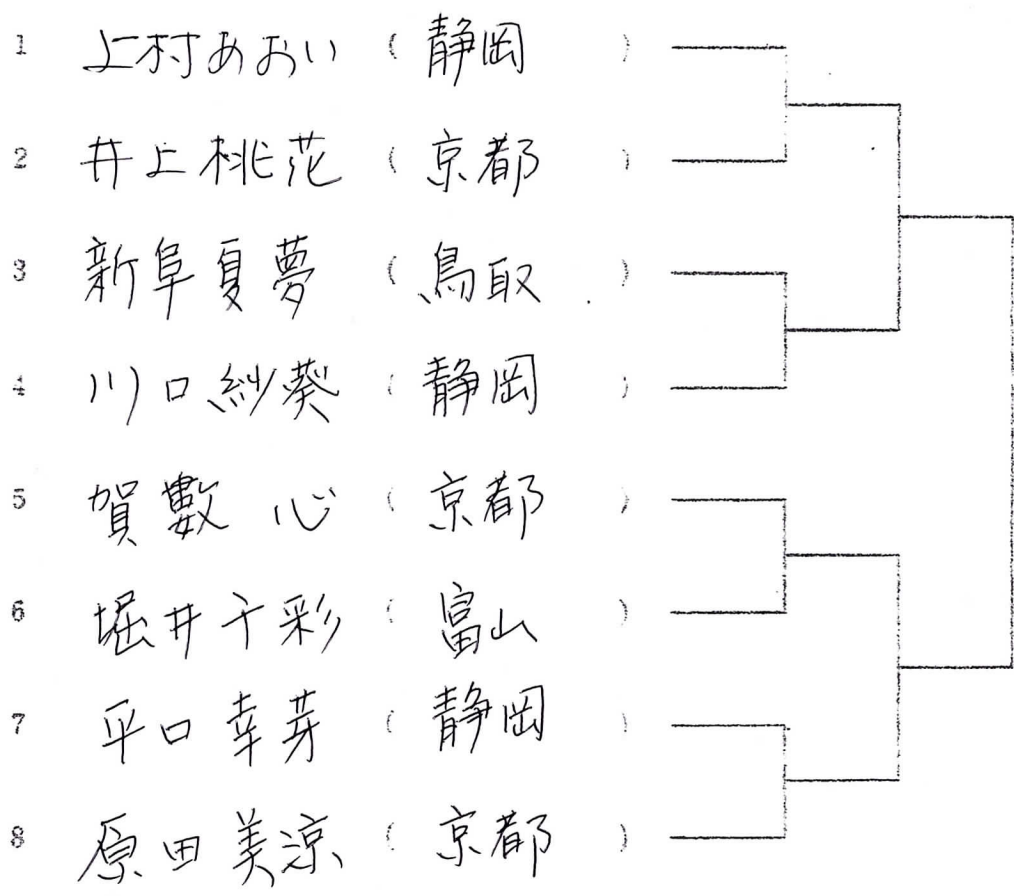 1 上村あおい (静岡)
2 井上桃花 (京都)
3 新阜夏夢 (鳥取)
4 川口紗葵 (静岡)
5 賀數 心 (京都)
6 堀井千彩 (富山)
7 平口幸芽 (静岡)
8 原田美涼 (京都)